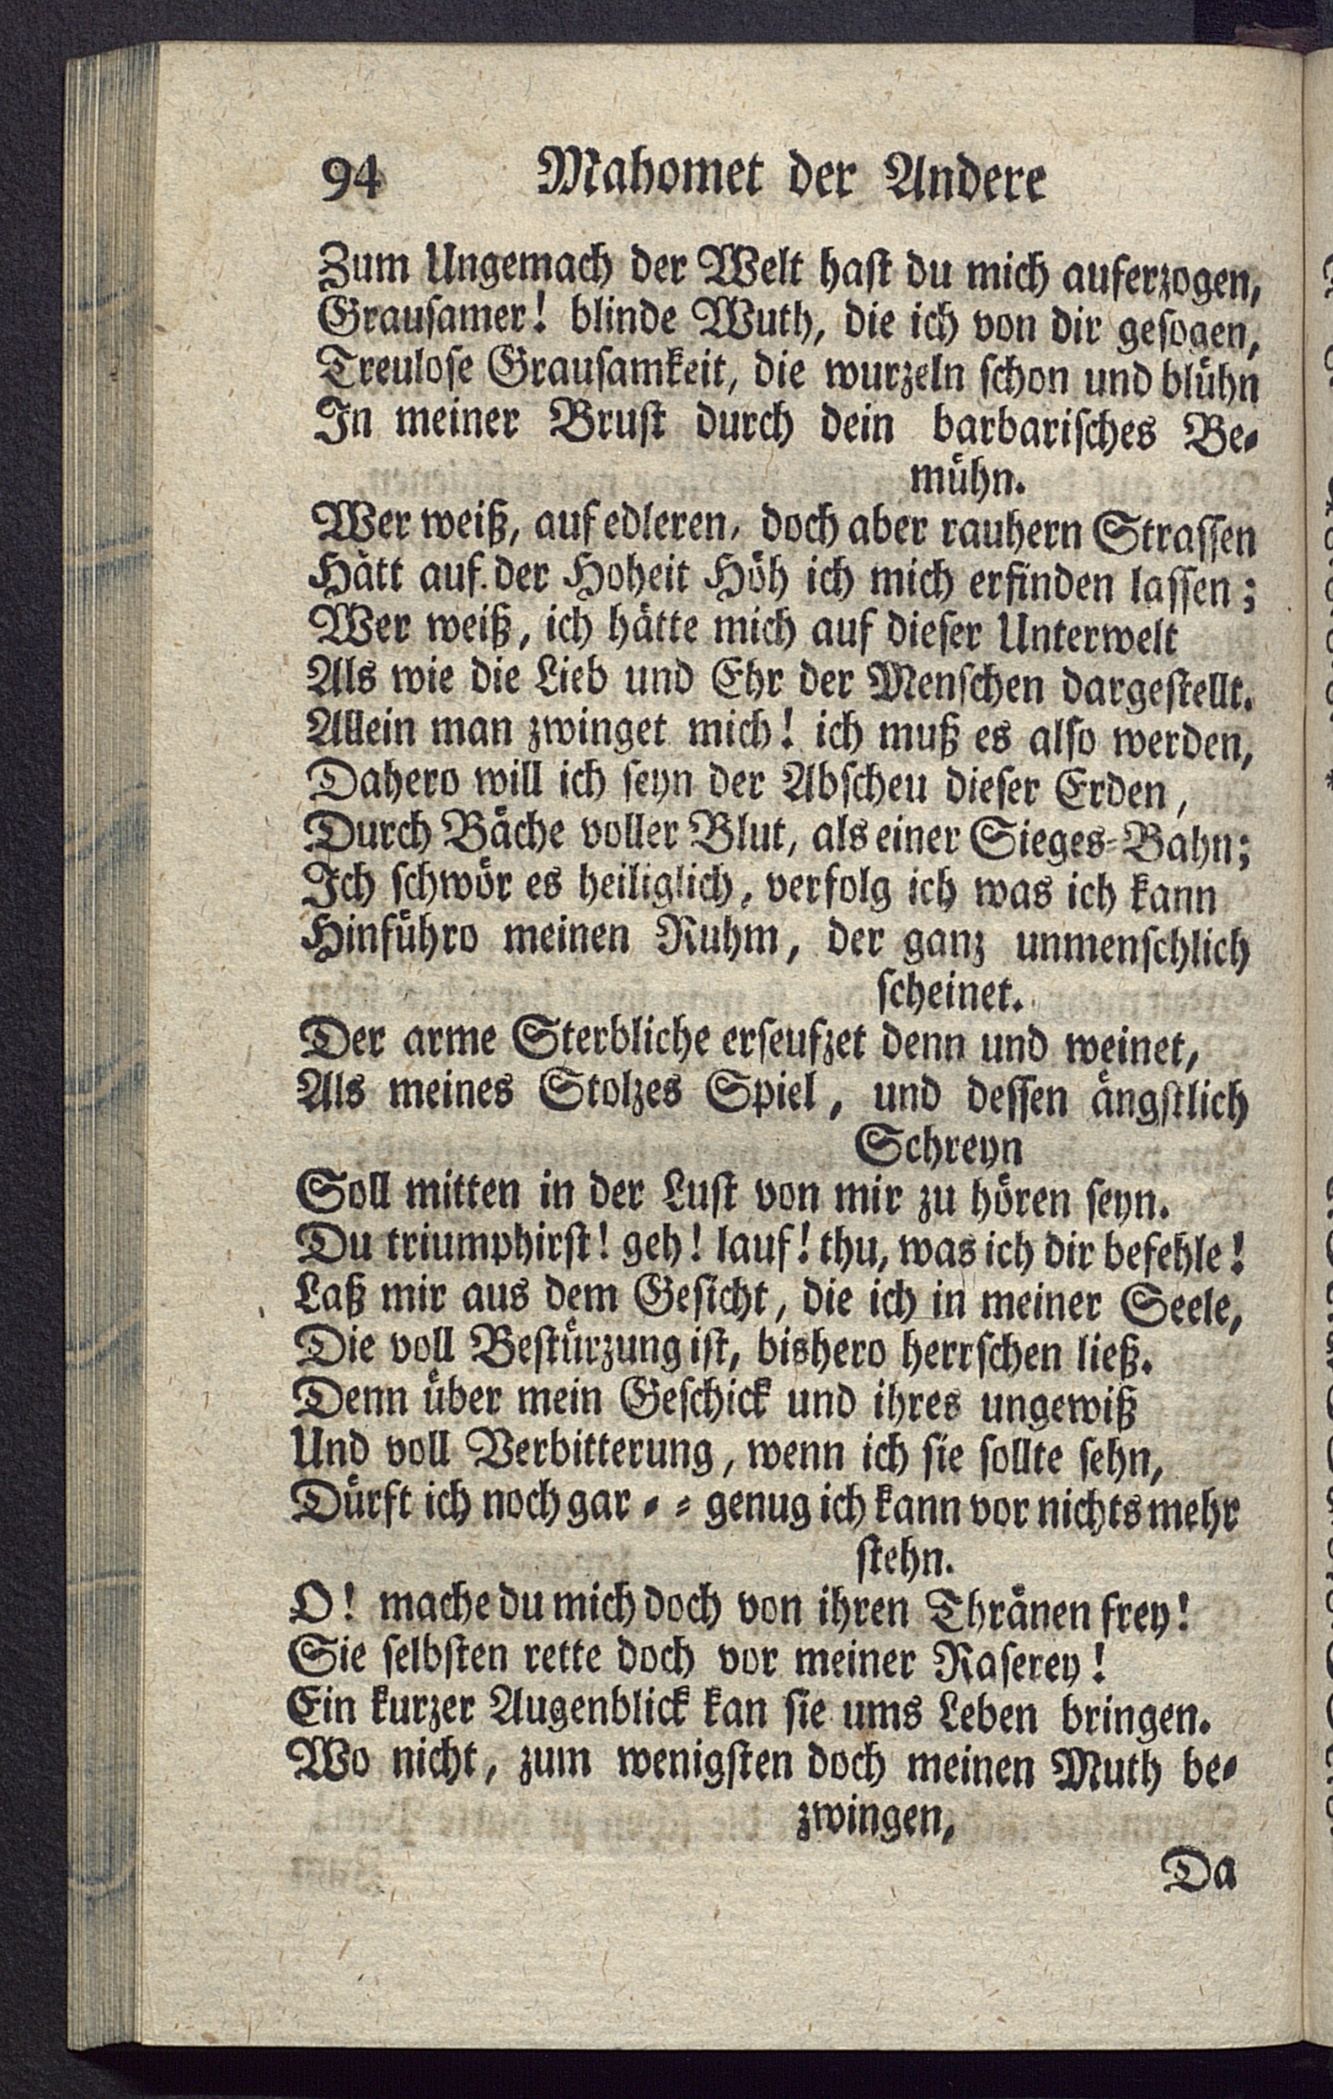 94 Mahomet der Andere
Zum Ungemach der Welt hast du mich auferzogen,
Grausamer! blinde Wuth, die ich von dir gesogen,
Treulose Grausamkeit, die wurzeln schon und blühn
In meiner Brust durch dein barbarisches Be-
mühn.
Wer weiß, auf edleren, doch aber rauhern Strassen
Hätt auf der Hoheit Höh ich mich erfinden lassen;
Wer weiß, ich hätte mich auf dieser Unterwelt
Als wie die Lieb und Ehr der Menschen dargestellt.
Allein man zwinget mich! ich muß es also werden,
Dahero will ich seyn der Abscheu dieser Erden,
Durch Bäche voller Blut, als einer Sieges-Bahn;
Ich schwör es heiliglich, verfolg ich was ich kann
Hinführo meinen Ruhm, der ganz unmenschlich
scheinet.
Der arme Sterbliche erseufzet denn und weinet,
Als meines Stolzes Spiel, und dessen ängstlich
Schreyn
Soll mitten in der Lust von mir zu hören seyn.
Du triumphirst! geh! lauf! thu, was ich dir befehle!
Laß mir aus dem Gesicht, die ich in meiner Seele,
Die voll Bestürzung ist, bishero herrschen ließ.
Denn über mein Geschick und ihres ungewiß
Und voll Verbitterung, wenn ich sie sollte sehn,
Dürft ich noch gar - - genug ich kann vor nichts mehr
stehn.
O! mache du mich doch von ihren Thränen frey!
Sie selbsten rette doch vor meiner Raserey!
Ein kurzer Augenblick kan sie ums Leben bringen.
Wo nicht, zum wenigsten doch meinen Muth be-
zwingen,
Da